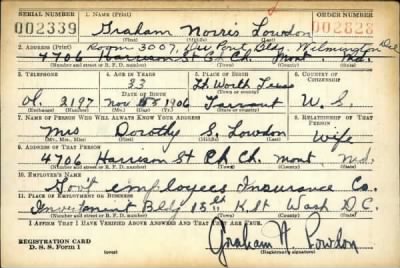 SERIAL NUMBER 1. NAME (Print) ORDER NUMBER
002339 Graham Norris Lowdon 002828
(First) (Middle) (Last)
2. ADDRESS (Print) Room 3007, Du Pont Bldg. Wilmington Del
4706 Harrison St Ch Ch. Mont. Md.
(Number and street or R. F. D. number) (Town) (County) (State)
3. TELEPHONE 4. AGE IN YEARS 5. PLACE OF BIRTH 6. COUNTRY OF CITIZENSHIP
33 Ft. Worth Texas
Ol. 2197 Nov 1906 Tarrant U. S.
7. NAME OF PERSON WHO WILL ALWAYS KNOW YOUR ADDRESS 8. RELATIONSHIP OF THAT PERSON
Mrs Dorothy S. Lowdon Wife
(Mr., Mrs., Miss) (First) (Middle) (Last)
9. ADDRESS OF THAT PERSON
4706 Harrison St Ch Ch. Mont Md.
(Number and street or R. F. D. number) (Town) (County) (State)
10. EMPLOYER'S NAME
Gov't employees Insurance Co.
11. PLACE OF EMPLOYMENT OR BUSINESS
Investment Bldg 15th K St Wash D.C.
(Number and street or R. F. D. number) (Town) (County) (State)
I AFFIRM THAT I HAVE VERIFIED ABOVE ANSWERS AND THAT THEY ARE TRUE.
REGISTRATION CARD
D. S. S. Form 1 (over) Graham N. Lowdon
(Registrant's signature)